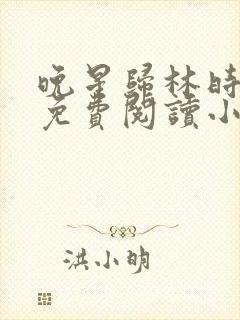 晚星歸林時
免費閱讀小
洪小明